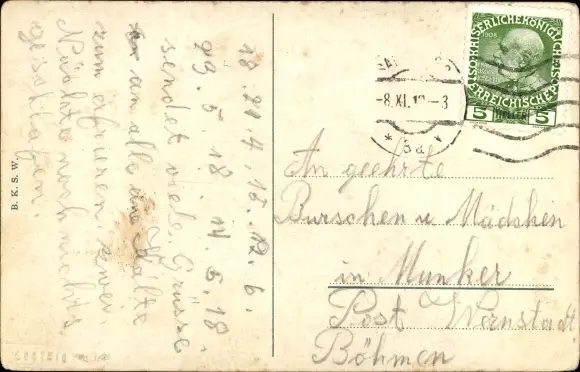 18 21.4, 15. 12. 6.
23.5 18. 14.5, 18.
sendet viele Grüsse
an alle die Kälte
zum erfrieren zwei
Nächte noch nichts
geschlafen.
B. K. S. W.
KAISERLICHEKÖNIGLICHE
ÖSTERREICHISCHE POST
1908
5 HELLER 5
-8.XI.1
-3
* 3a *
An geehrte
Burschen u Mädchen
in Munker
Post Wernstadt
Böhmen